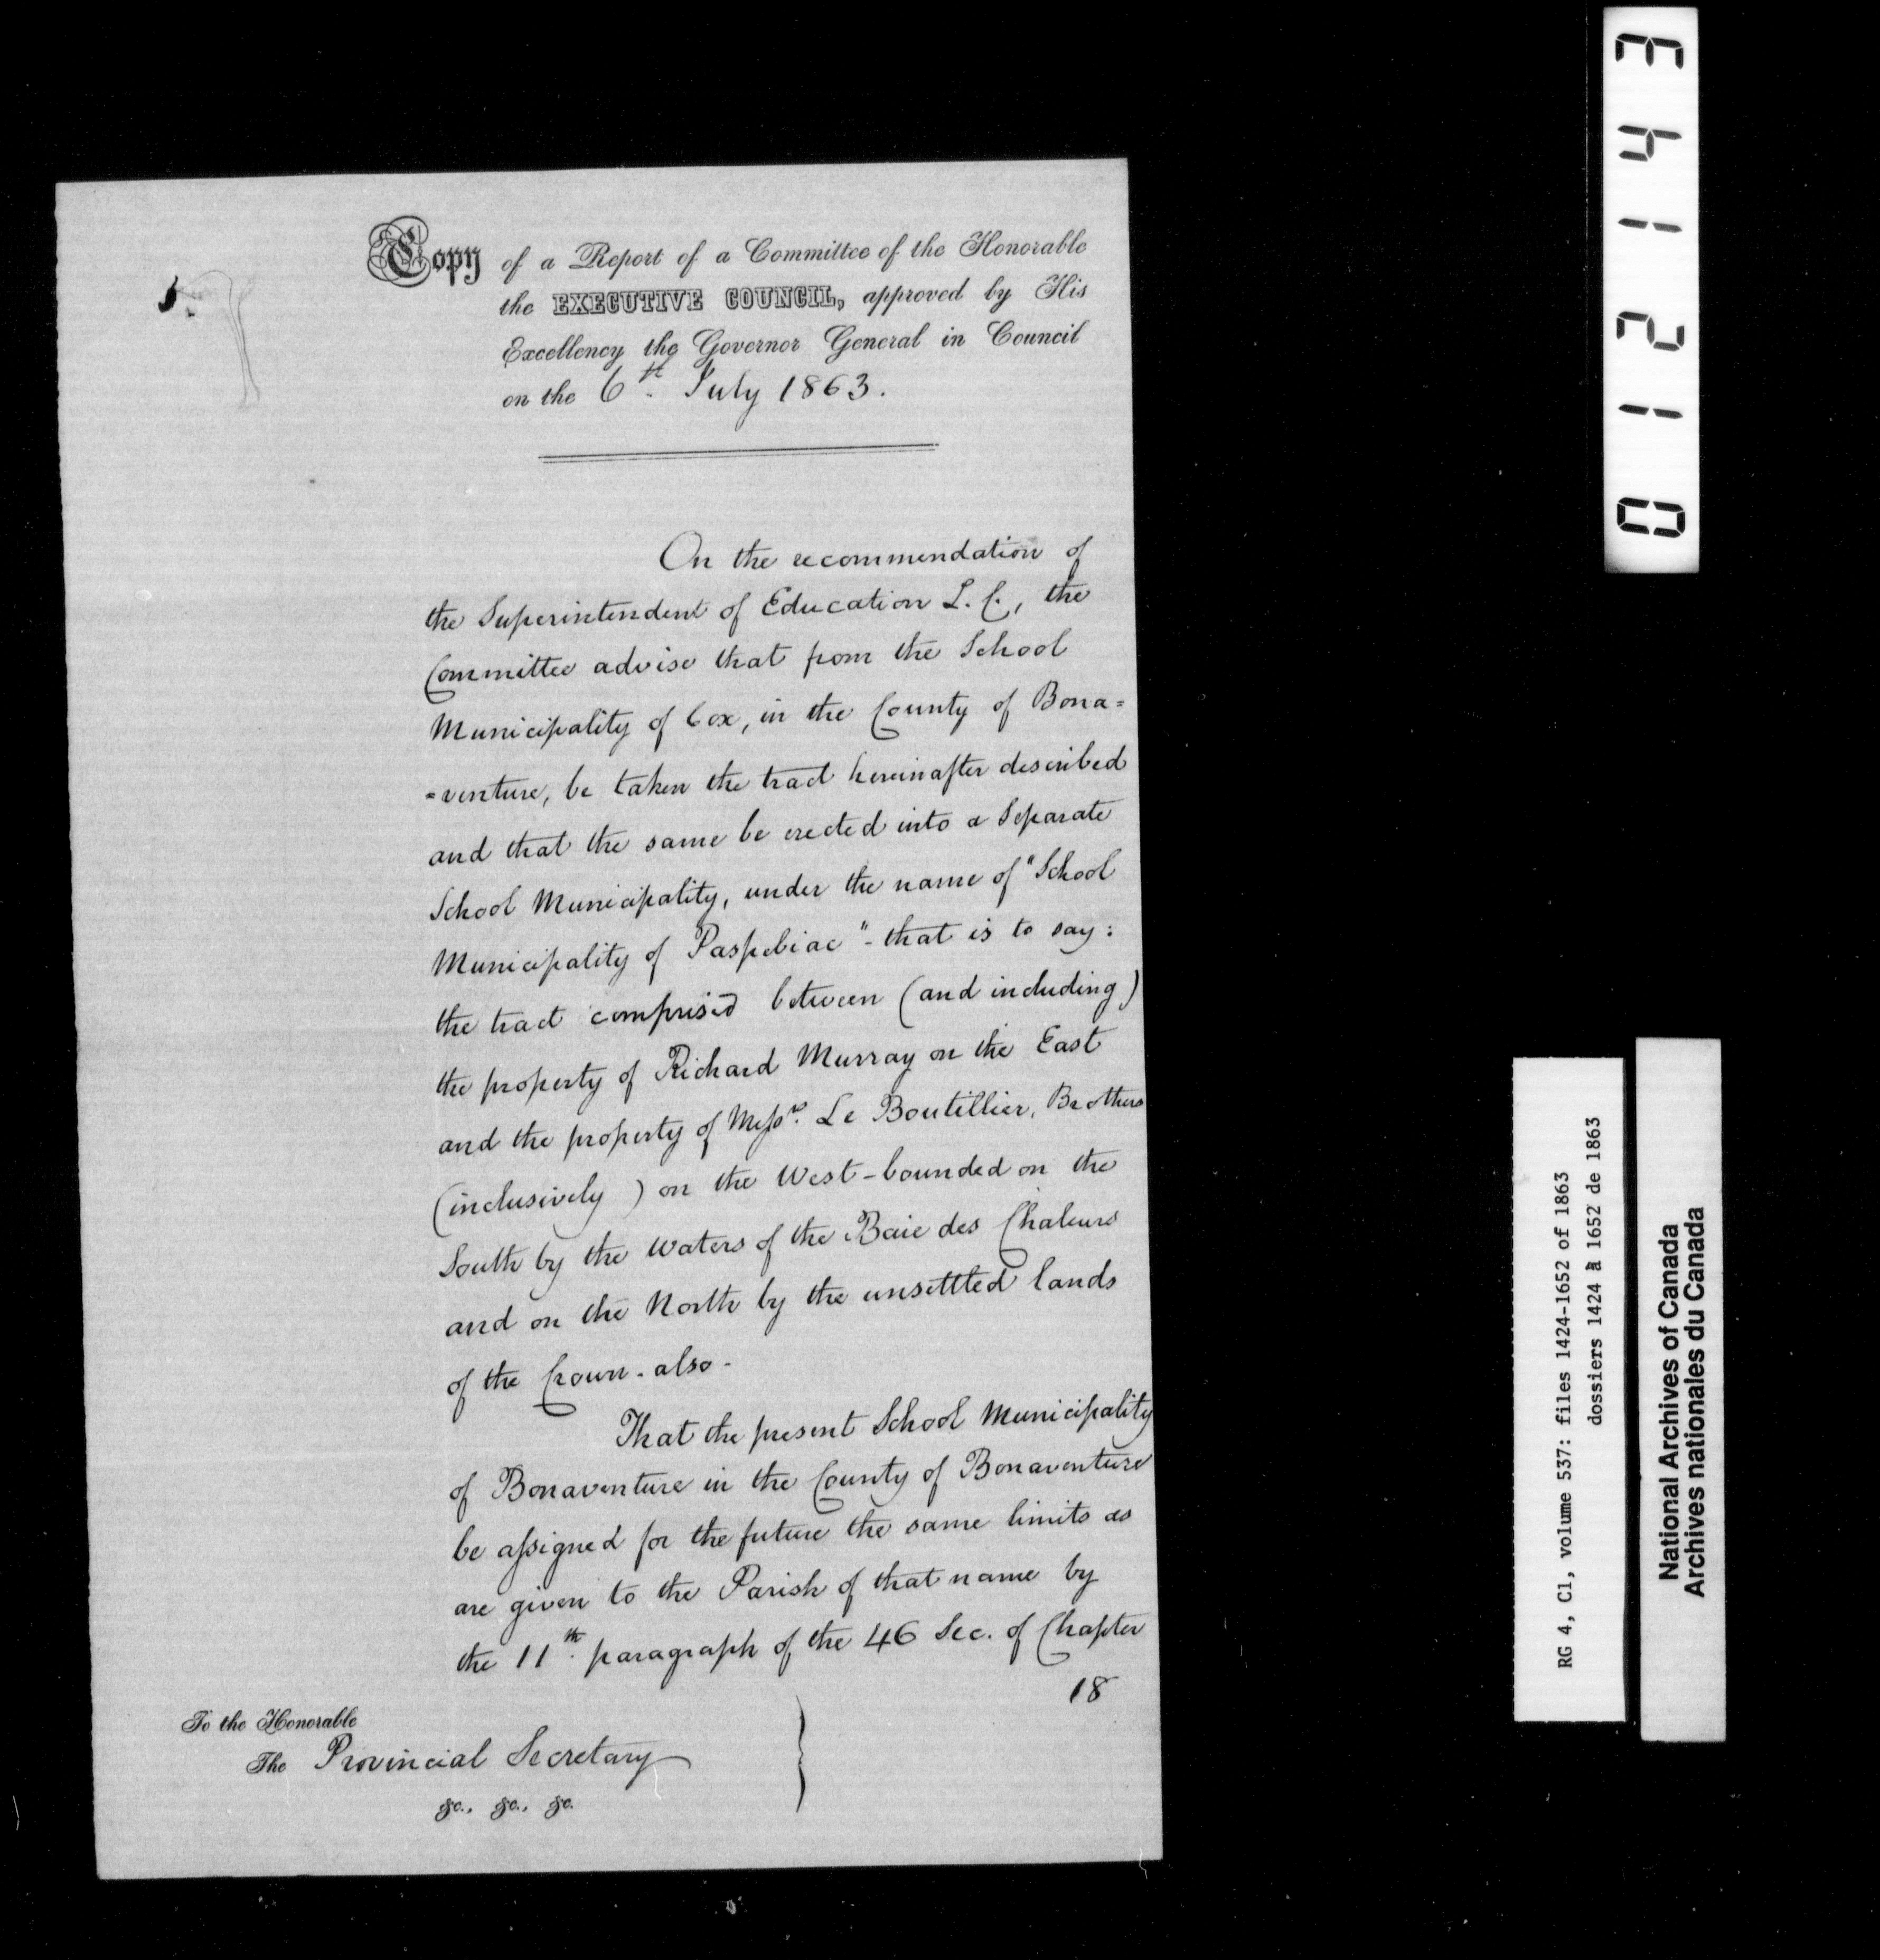 Copy of a Report of a Committee of the Honorable
the EXECUTIVE COUNCIL, approved by His
Excellency the Governor General in Council
on the 6th. July 1863.
On the recommendation of
the Superintendent of Education L. C., the
Committee advise that from the School
Municipality of Cox, in the County of Bona=
=venture, be taken the tract hereinafter described
and that the same be erected into a Separate
School Municipality, under the name of "School
Municipality of Paspebiac" - that is to say:
the tract comprised between (and including)
the property of Richard Murray on the East
and the property of Messrs. Le Boutillier, Brothers
(inclusively) on the West - bounded on the
South by the Waters of the Baie des Chaleurs
and on the North by the unsettled lands
of the Crown - also -
That the present School Municipality
of Bonaventure in the County of Bonaventure
be assigned for the future the same limits as
are given to the Parish of that name by
the 11th. paragraph of the 46 Sec. of Chapter
18
To the Honorable
The Provincial Secretary
&c., &c., &c.
01 21 43
RG 4, C1, volume 537: files 1424-1652 of 1863
dossiers 1424 à 1652 de 1863
National Archives of Canada
Archives nationales du Canada